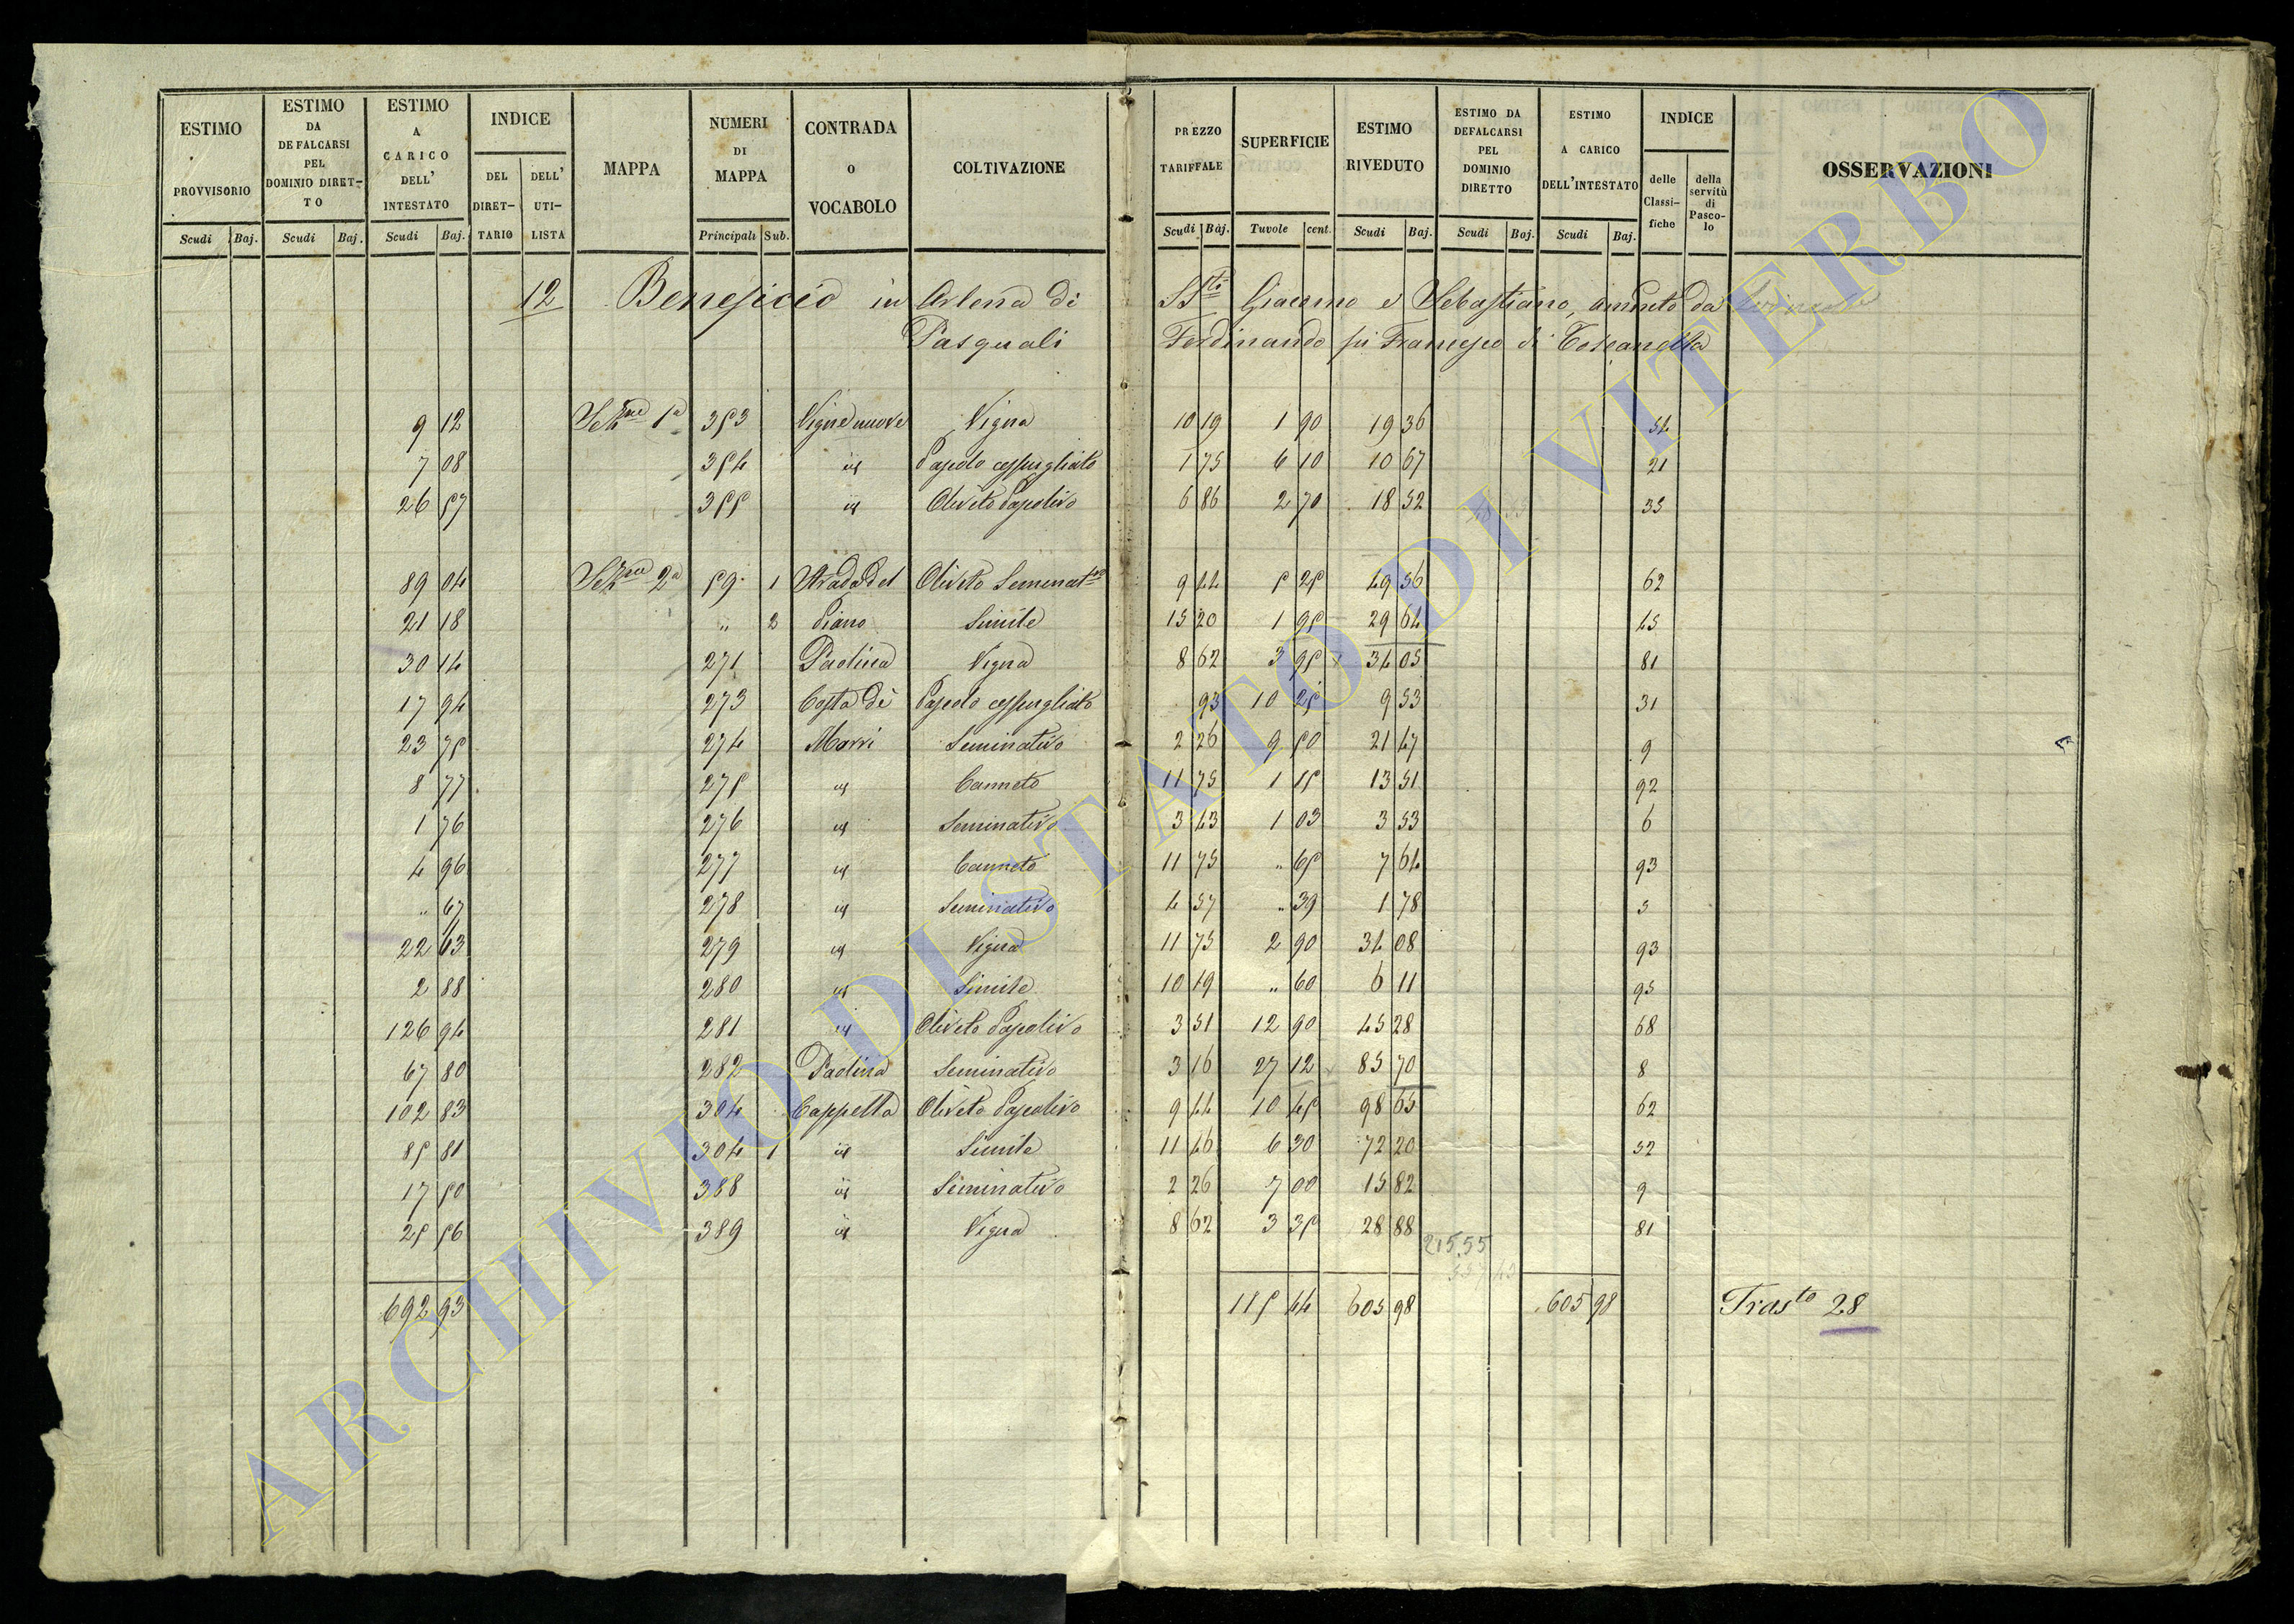 ESTIMO PROVVISORIO Scudi Baj. | ESTIMO DA DEFALCARSI PEL DOMINIO DIRET-TO Scudi Baj. | ESTIMO A CARICO DELL' INTESTATO Scudi Baj. | INDICE DEL DIRET-TARIO DELL' UTI-LISTA | MAPPA | NUMERI DI MAPPA Principali Sub. | CONTRADA o VOCABOLO | COLTIVAZIONE | PREZZO TARIFFALE Scudi Baj. | SUPERFICIE Tavole cent. | ESTIMO RIVEDUTO Scudi Baj. | ESTIMO DA DEFALCARSI PEL DOMINIO DIRETTO Scudi Baj. | ESTIMO A CARICO DELL'INTESTATO Scudi Baj. | INDICE delle Classi-fiche della servitù di Pasco-lo | OSSERVAZIONI
12 Beneficio in Arlena di SSti Giacomo e Sebastiano, ammto da
Pasquali Ferdinando fu Francesco di Toscanella
9 12 Sezne 1a 353 Vigne nuove Vigna 10 19 1 90 19 36 54
7 08 354 id Pascolo cespugliato 1 75 6 10 10 67 21
26 57 355 id Oliveto Pascolivo 6 86 2 70 18 52 35
89 04 Sezne 2a 59 1 Strada del Oliveto Seminatvo 9 44 5 25 49 56 62
21 18 " 2 Piano Simile 15 20 1 95 29 64 45
30 14 271 Paolina Vigna 8 62 3 95 34 05 81
17 94 273 Costa di Pascolo cespugliato 93 10 25 9 53 31
23 75 274 Marri Seminativo 2 26 9 50 21 47 9
8 77 275 id Canneto 11 75 1 15 13 51 92
1 76 276 id Seminativo 3 43 1 03 3 53 6
4 96 277 id Canneto 11 75 " 65 7 64 93
" 67 278 id Seminativo 4 57 " 39 1 78 5
22 63 279 id Vigna 11 75 2 90 34 08 93
2 88 280 id Simile 10 19 " 60 6 11 95
126 94 281 id Oliveto Pascolivo 3 51 12 90 45 28 68
67 80 282 Paolina Seminativo 3 16 27 12 85 70 8
102 83 304 Cappella Oliveto Pascolivo 9 44 10 45 98 65 62
85 81 304 1 id Simile 11 46 6 30 72 20 52
17 50 388 id Seminativo 2 26 7 00 15 82 9
25 56 389 id Vigna 8 62 3 35 28 88 81
215.55
692 93 115 44 605 98 605 98 Trasto 28
ARCHIVIO DI STATO DI VITERBO